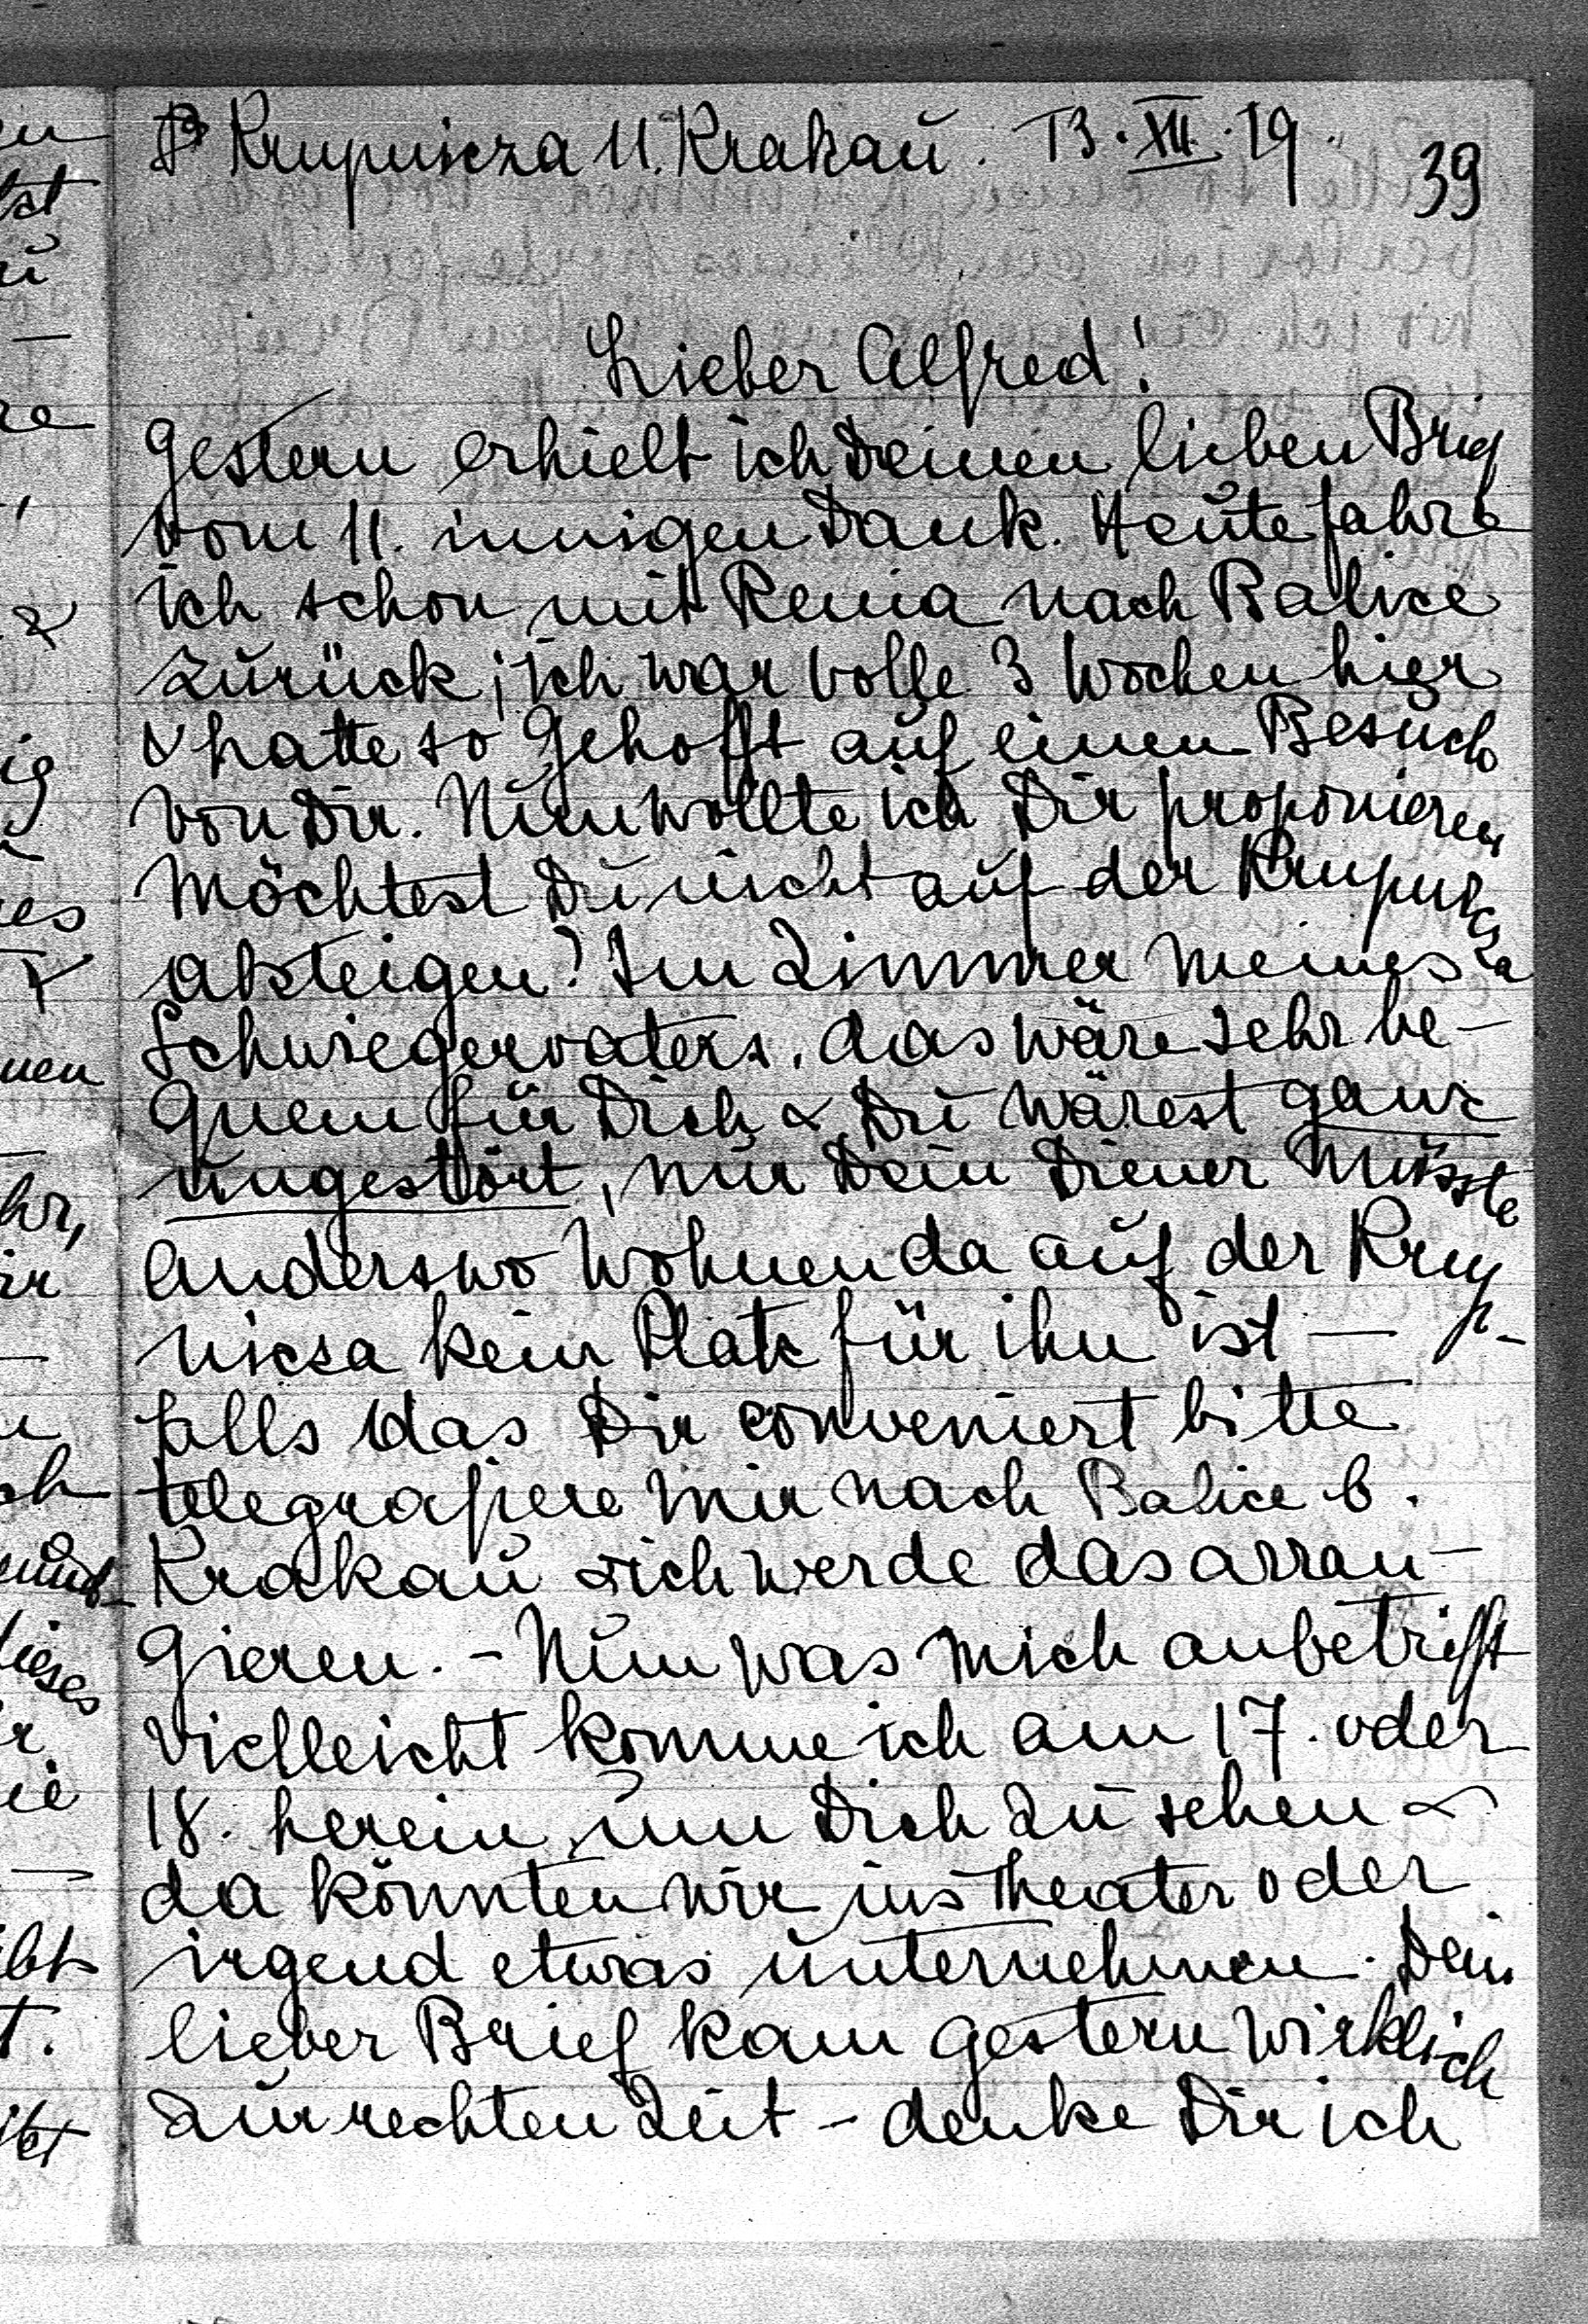 Krupnicza 11. Krakau. 13.XII.19.
39
Lieber Alfred!
Gestern erhielt ich Deinen lieben Brief
vom 11. innigen Dank. Heute fahre
ich schon mit Renia nach Balice
zurück; ich war volle 3 Wochen hier
& hatte so gehofft auf einen Besuch
von Dir. Nun wollte ich Dir proponieren
Möchtest Du nicht auf der Krupnicza
absteigen? Im Zimmer meines
Schwiegervaters, das wäre sehr be-
quem für Dich & Du wärest ganz
ungestört, nur Dein Diener müsste
anderswo wohnen da auf der Krup-
nicza kein Platz für ihn ist —
falls das Dir conveniert bitte
telegrafiere mir nach Balice b.
Krakau & ich werde das arran-
gieren. - Nun was mich anbetrifft
vielleicht komme ich am 17. oder
18. herein, um Dich zu sehen &
da könnten wir ins Theater oder
irgend etwas unternehmen. Dein
lieber Brief kam gestern wirklich
zur rechten Zeit - denke Dir ich